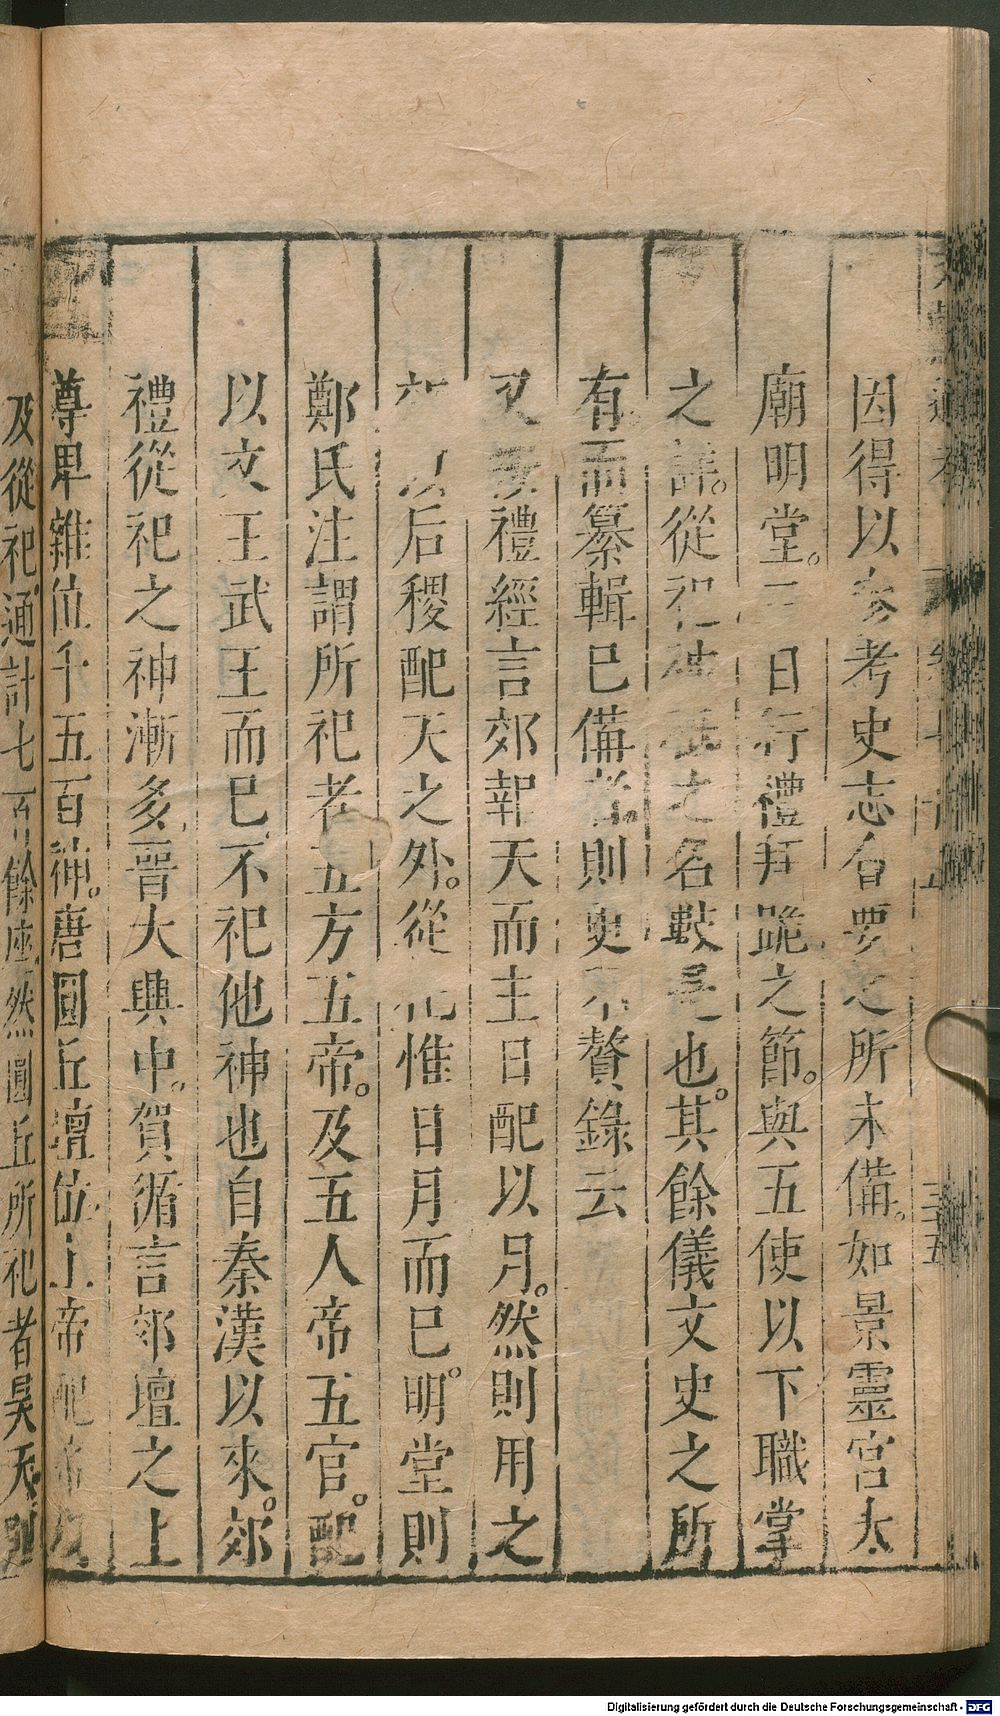 因得以參考史志會要之所未備。如景靈宮太
廟明堂。三日行禮拜跪之節。與五使以下職掌
之詳。從祀神號之名數是也。其餘儀文史之所
有而纂輯已備者。則更不贅錄云
又按禮經言郊報天而主日配以月。然則用之
於以后稷配天之外。從祀惟日月而已。明堂則
鄭氏注謂所祀者五方五帝。及五人帝五官。配
以文王武王而已不祀他神也自秦漢以來。郊
禮從祀之神漸多晉大興中。賀循言郊壇之上
尊卑雜位千五百神。唐圓丘壇位上帝配帝
及從祀通計七百餘座然圓丘所祀者昊天則
Digitalisierung gefördert durch die Deutsche Forschungsgemeinschaft - DFG